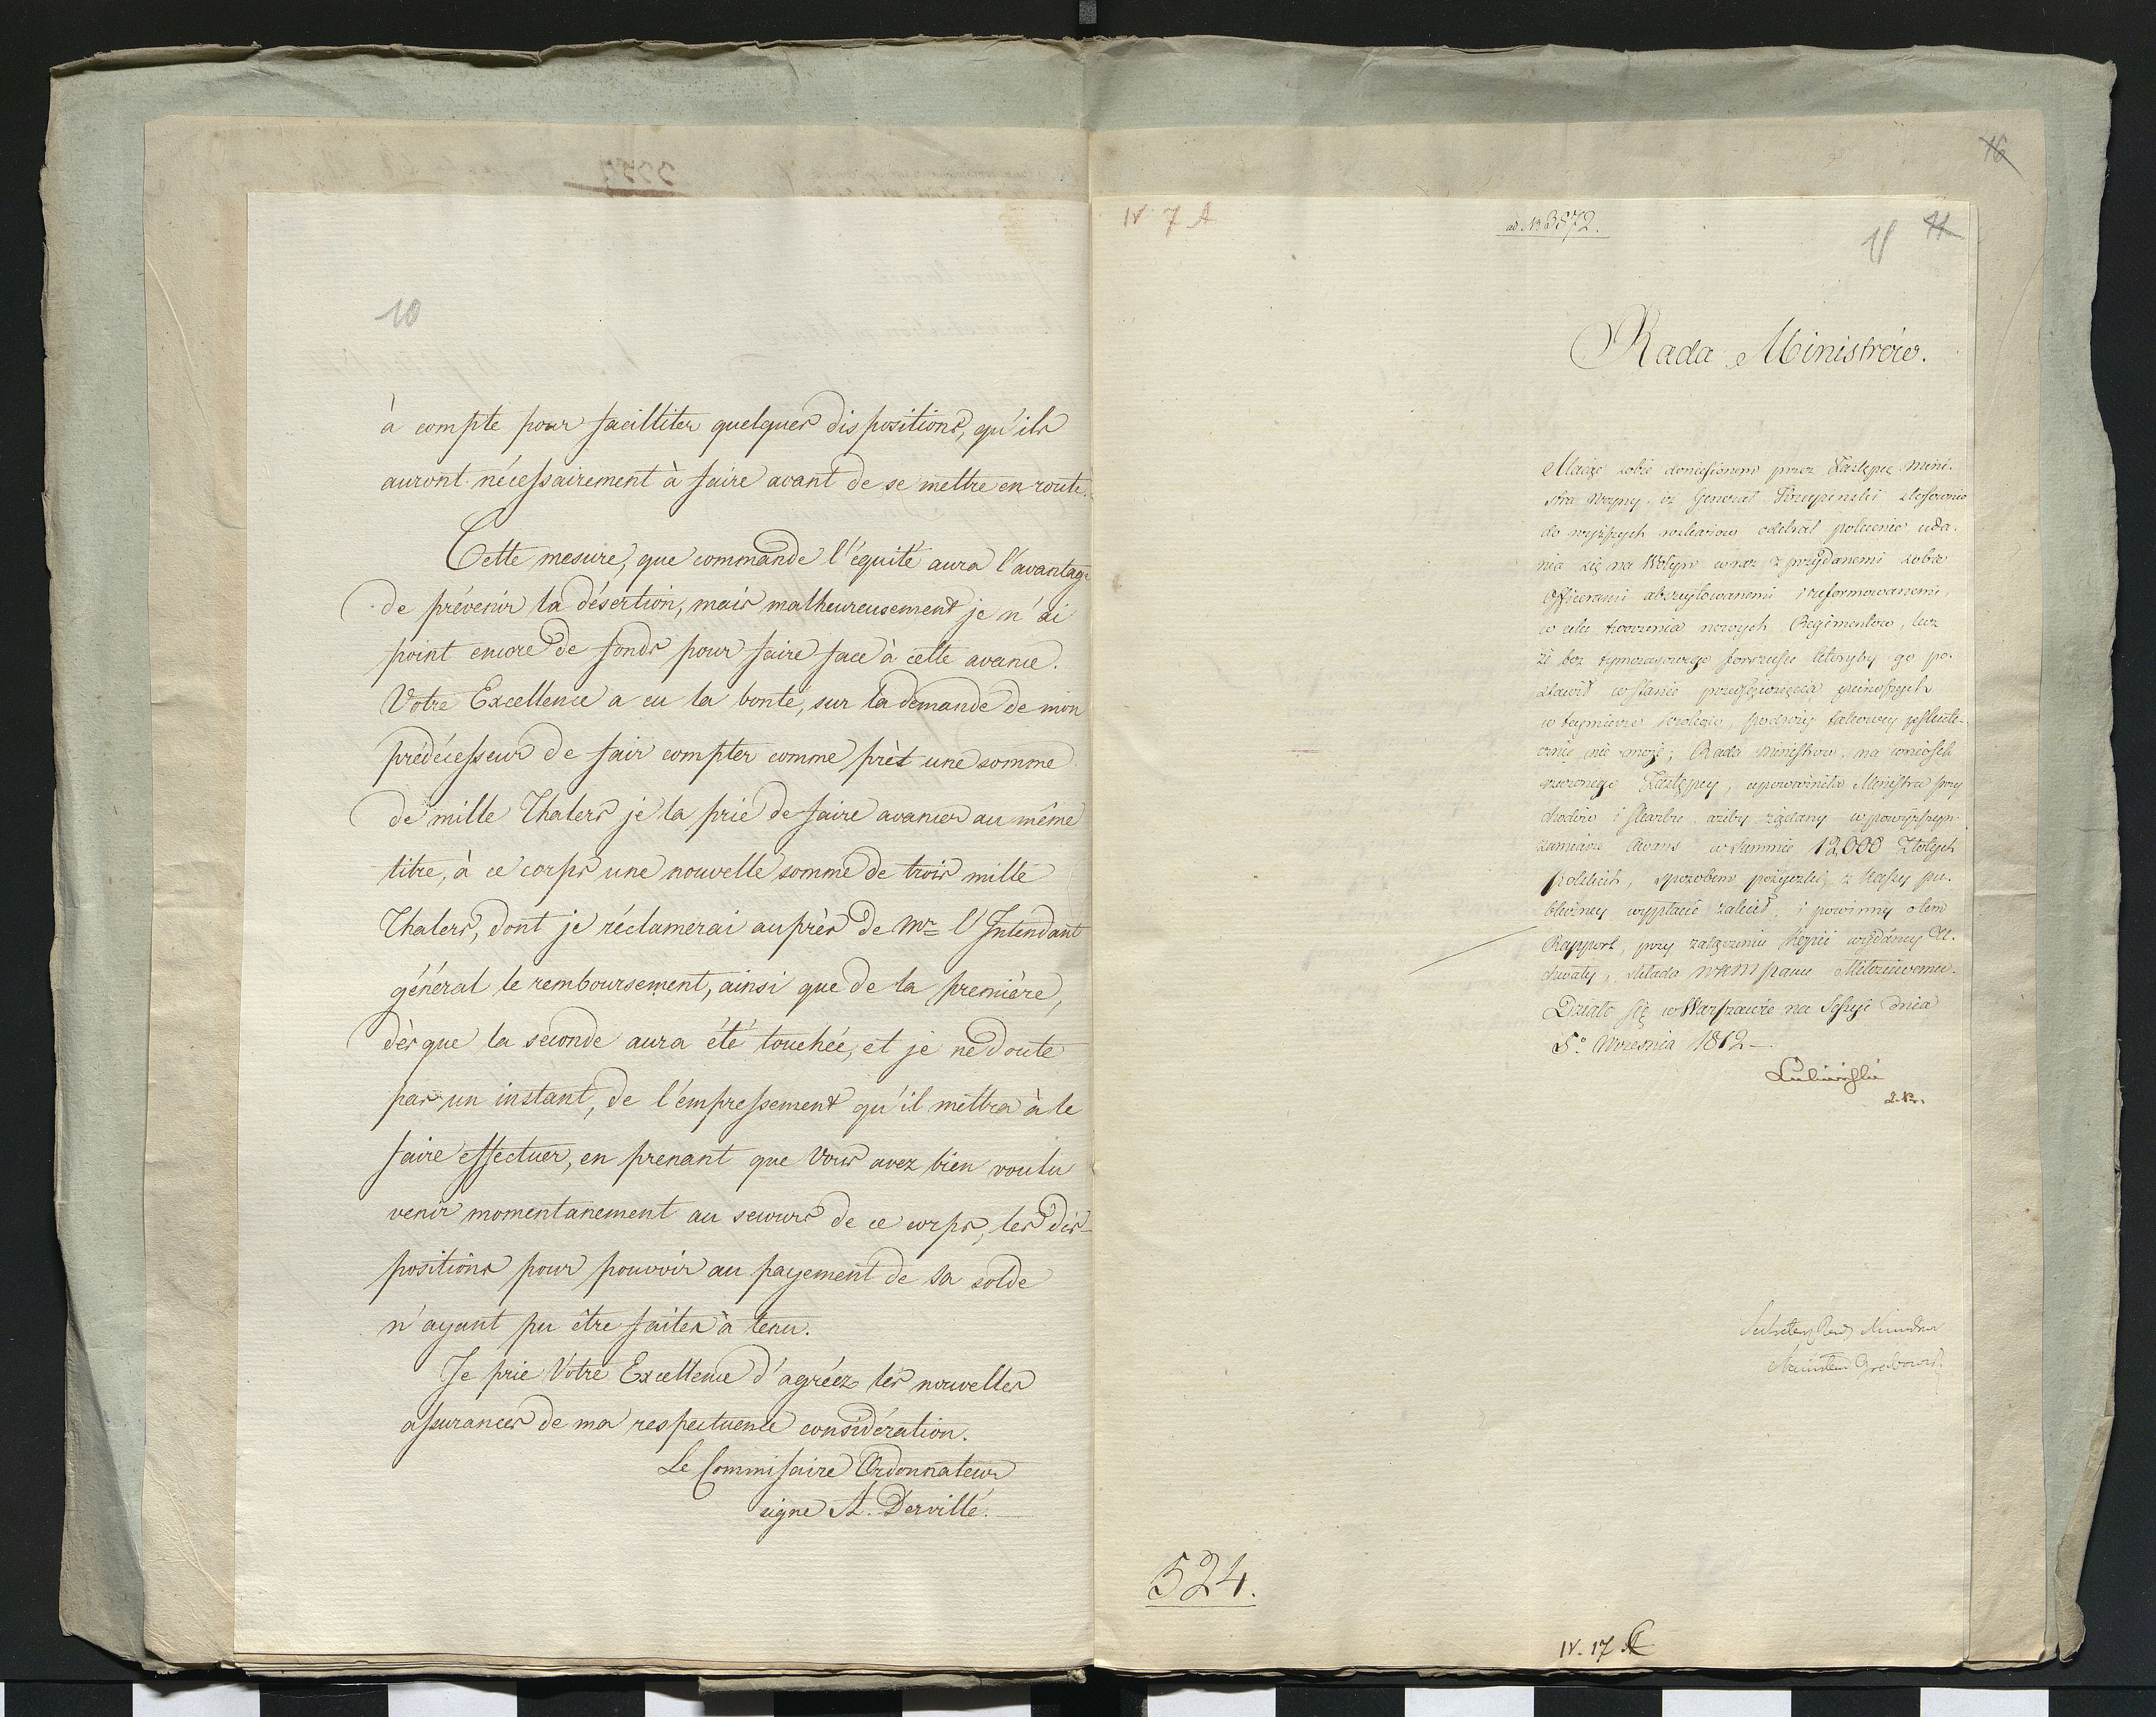 10
à compte pour facilliter quelques dispositions, qu'ils
auront nécessairement à faire avant de se mettre en route.
Cette mesure, que commande l'équité aura l'avantage
de prévenir la désertion, mais malheureusement je n'ai
point encore de fonds pour faire face à cette avance.
Votre Excellence a eu la bonté, sur la demande de mon
prédécesseur de fair compter comme prèt une somme
de mille Thalers je la prie de faire avancer au même
titre, à ce corps une nouvelle somme de trois mille
Thalers, dont je réclamerai auprès de Mr l'Intendant
général le remboursement, ainsi que de la première,
dès que la seconde aura été touchée, et je ne doute
pas un instant, de l'empressement qu'il mettra à le
faire effectuer, en prenant que Vous avez bien voulu
venir momentanement au secours de ce corps, les dis-
positions pour pouvoir au payement de sa solde
n'ayant pu être faites à tems.
Je prie Votre Excellence d'agréez les nouvelles
assurances de ma respectueuse considération.
Le Commissaire Ordonnateur
signe A. Derville.
16
IV 7 A
ad N 3872.
11
Rada Ministrów.
Maiąc sobie doniesionem przez Zastępcę Mini-
stra Woyny, iż Generał stosownie
do wyższych rozkazow odebrał polecenie uda-
nia się na Wołyn wraz z przydanemi sobie
Officerami abszeytowanemi i reformowanemi,
w celu tworzenia nowych Regimentow, lecz
że bez tymczasowego forszusu któryby go po-
stawił w stanie przedsięwzięcia
w teymierze krokow, podroży takowey uskute-
cznić nie może; Rada Ministrow, na wniosek
rzeczonego Zastępcy, upoważniła Ministra przy-
chodow i skarbu, ażeby żądany w powyższym
zamiarze Avans w Summie 12,000 Złotych
Polskich, sposobem pożyczki, z Kassy pu-
bliczney wypłacić zalecił, i powinny o tem
Rapport, przy załączeniu Kopii wydaney U-
chwały, składa WKM Panu Miłościwemu.
Działo się w Warszawie na Sessyi dnia
5o Września 1812
Sekretarz Rady Ministrow
Grabowski
524.
IV. 17. A